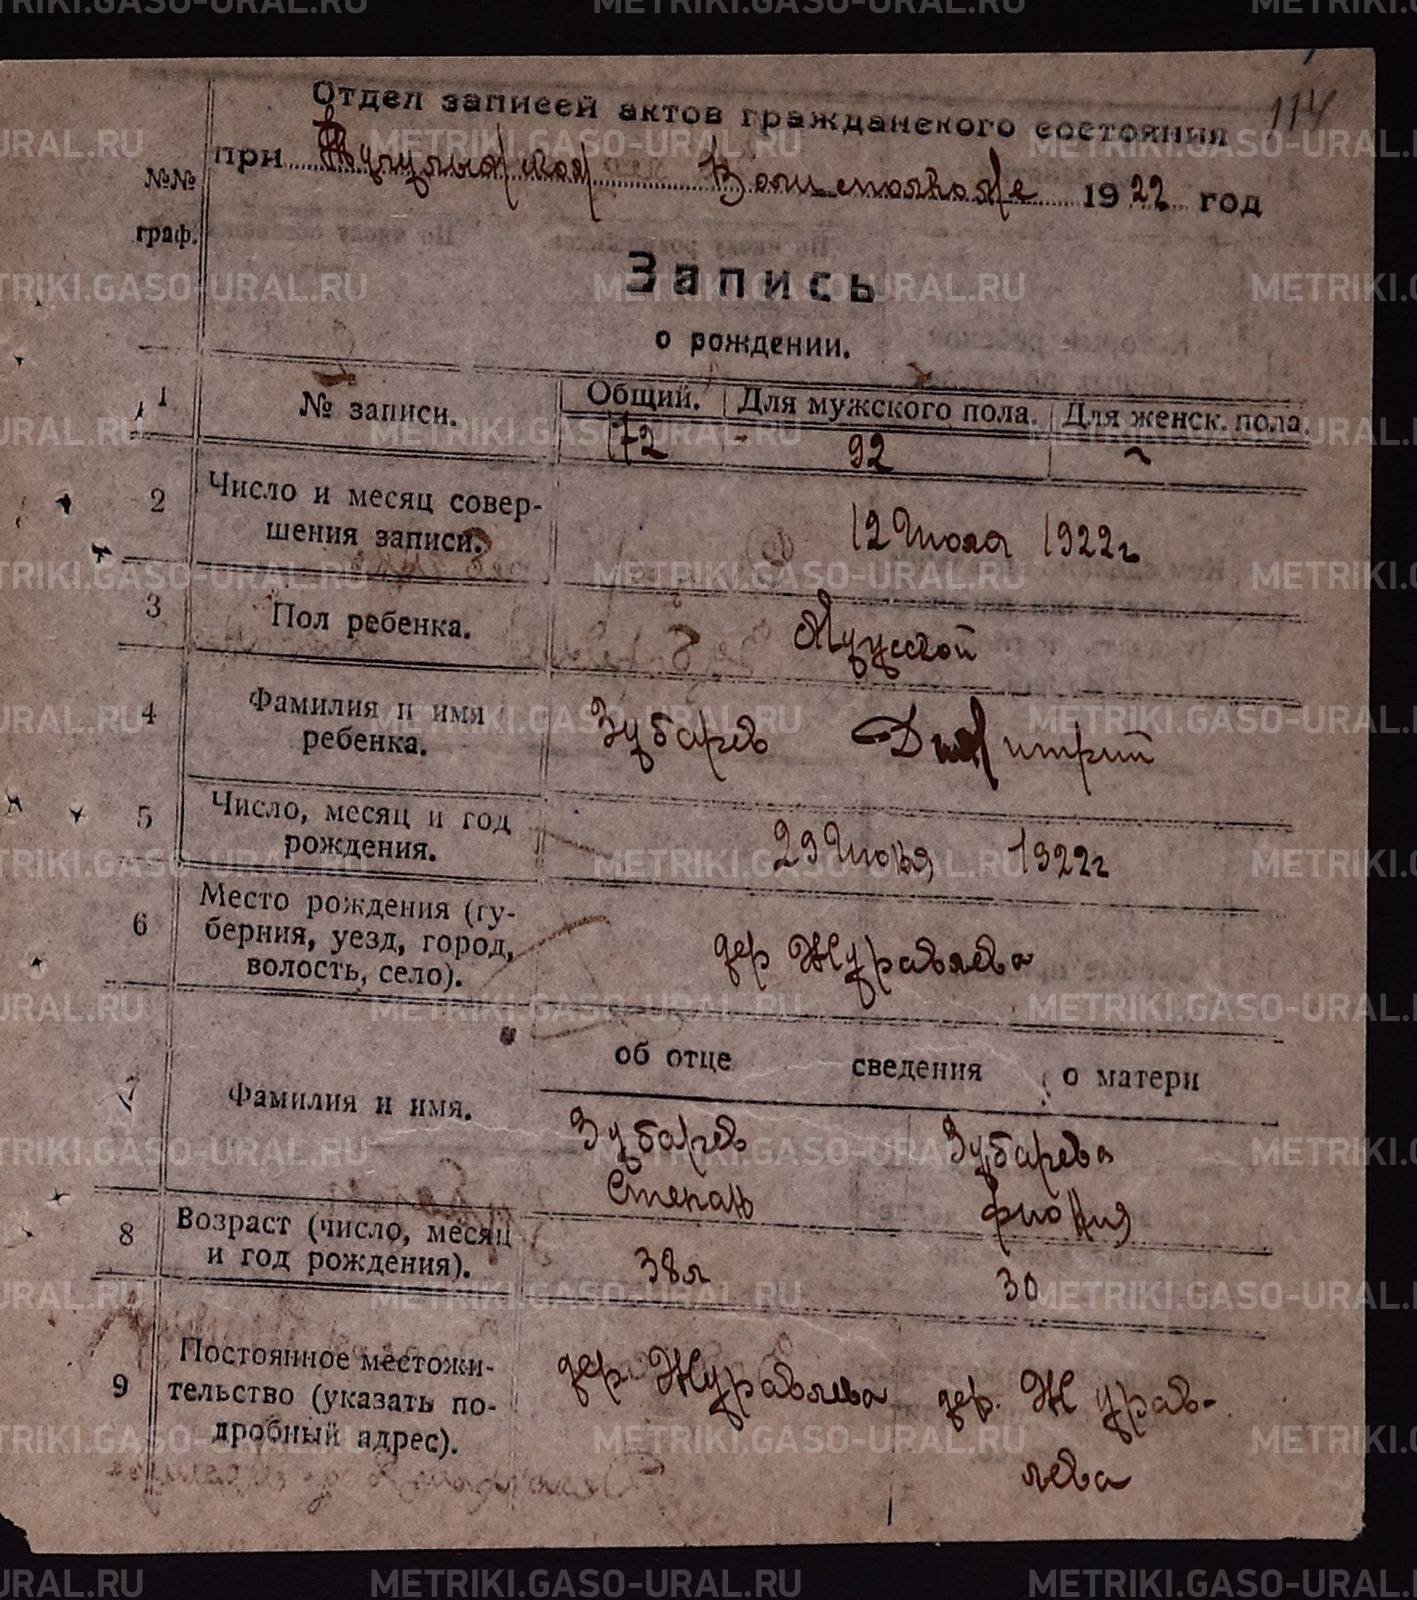 114
Отдел записей актов гражданского состояния
при Тугулымской Волисполкоме 1922 год
№№
граф.
Запись
о рождении.
1 № записи. Общий. Для мужского пола. Для женск. пола.
172 92 ~
2 Число и месяц совер-
шения записи. 12 Июля 1922г
3 Пол ребенка. Мужской
4 Фамилия и имя
ребенка. Зубарев Дмитрий
5 Число, месяц и год
рождения. 29 Июня 1922г
6 Место рождения (гу-
берния, уезд, город,
волость, село). дер Журавлева
об отце сведения о матери
7 Фамилия и имя. Зубарев Зубарева
Степан Фиония
8 Возраст (число, месяц
и год рождения). 38л 30
9 Постоянное местожи-
тельство (указать по-
дробный адрес). дер. Журавлева дер. Журав-
лева
METRIKI.GASO-URAL.RU